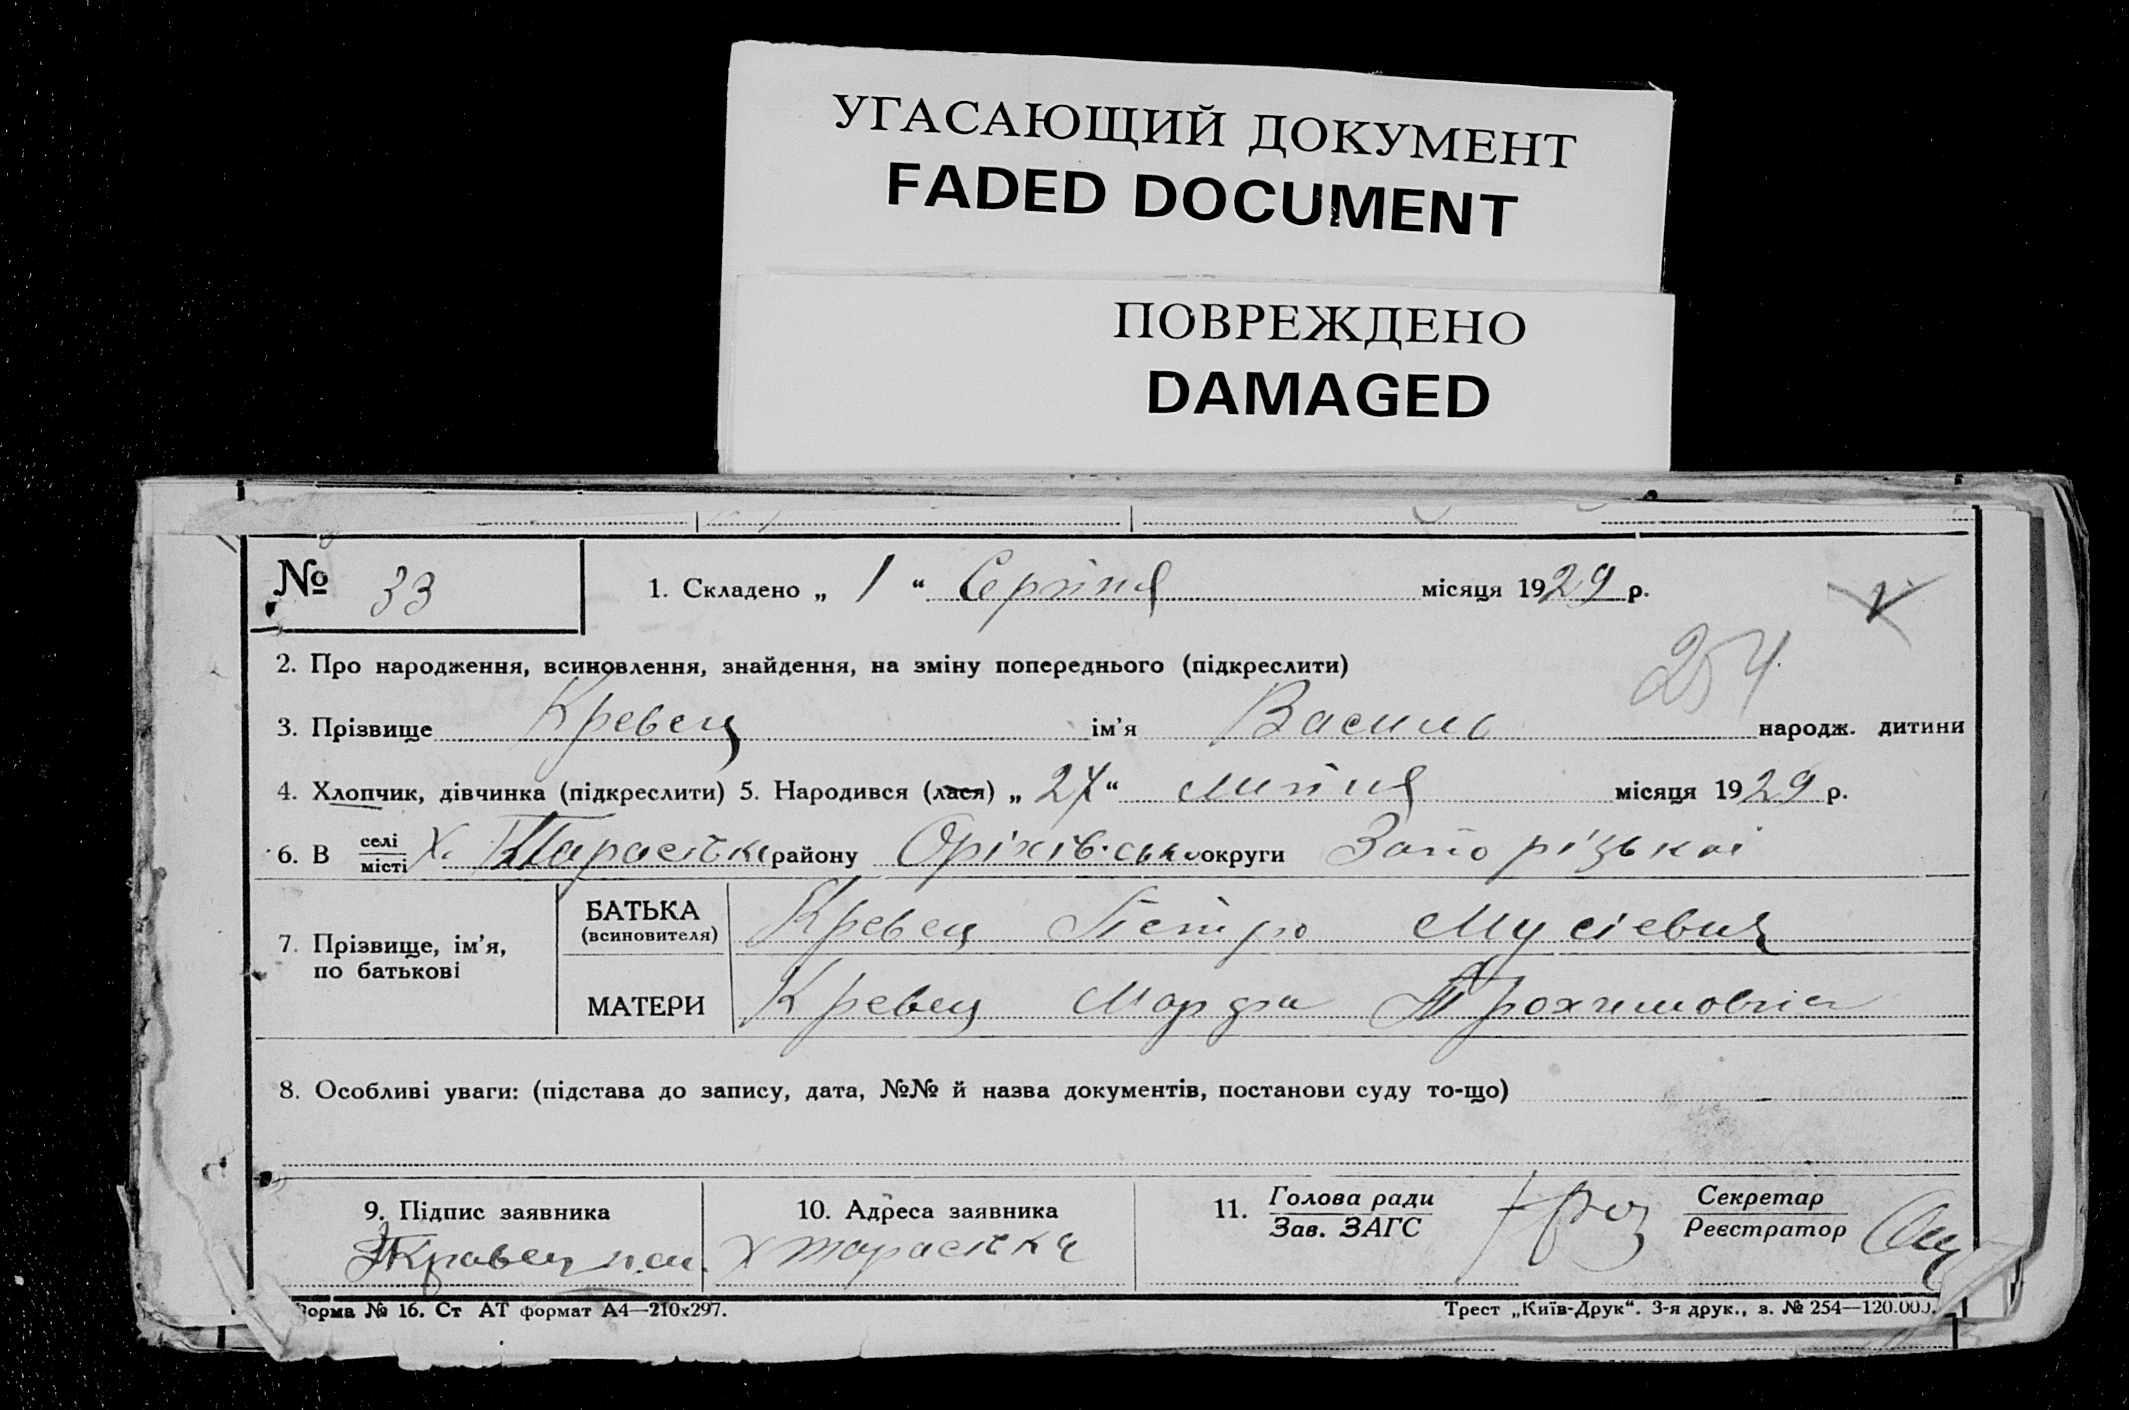 УГАСАЮЩИЙ ДОКУМЕНТ
FADED DOCUMENT
ПОВРЕЖДЕНО
DAMAGED
№ 33
1. Складено „ 1 “ Серпня місяця 1929 р.
254
2. Про народження, всиновлення, знайдення, на зміну попереднього (підкреслити)
3. Прізвище Кревец ім'я Василь народж. дитини
4. Хлопчик, дівчинка (підкреслити) 5. Народився (лася) „ 27 “ липня місяця 1929 р.
6. В селі місті х. Тарасівка району Оріхівсько округи Запорізької
7. Прізвище, ім'я, по батькові
БАТЬКА (всиновителя) Кревец Петро Мусієвич
МАТЕРИ Кревец Марфа
8. Особливі уваги: (підстава до запису, дата, №№ й назва документів, постанови суду то-що)
9. Підпис заявника
Кравец п.м.
10. Адреса заявника
х тарасівка
11. Голова ради Зав. ЗАГС
Секретар Реєстратор
Форма № 16. Ст АТ формат А4—210х297.
Трест „Київ-Друк“. 3-я друк., з. № 254—120.000.